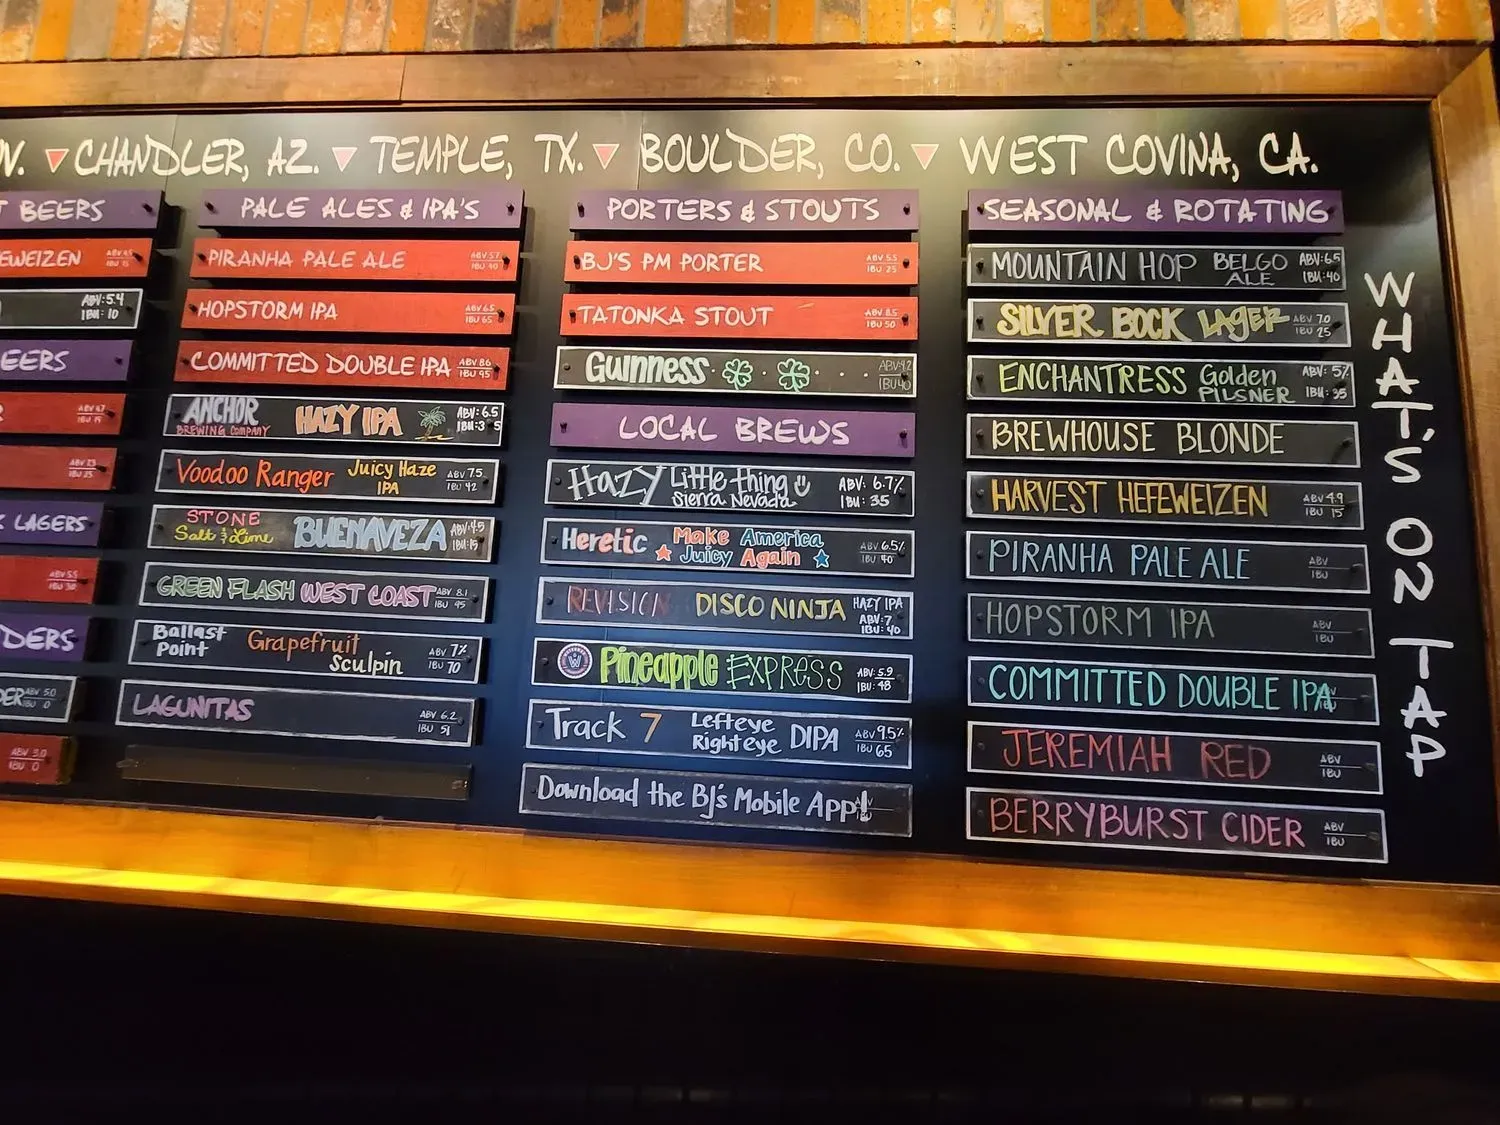 V. ▼ CHANDLER, AZ. ▼ TEMPLE, TX. ▼ BOULDER, CO. ▼ WEST COVINA, CA.
T BEERS
EWEIZEN
ABV: 5.4
IBU: 10
EERS
R
K LAGERS
ABV 5.5
IBU 30
DERS
DER ABV 5.0
IBU 0
ABV 5.0
IBU 0
PALE ALES & IPA'S
PIRANHA PALE ALE ABV 5.7
IBU 40
HOPSTORM IPA ABV 6.5
IBU 65
COMMITTED DOUBLE IPA ABV 8.6
IBU 95
ANCHOR HAZY IPA ABV: 6.5
BREWING COMPANY IBU: 35
Voodoo Ranger Juicy Haze ABV 7.5
IPA IBU 42
STONE BUENAVEZA ABV: 4.5
Salt & Lime IBU: 15
GREEN FLASH WEST COAST ABV 8.1
IBU 95
Ballast Grapefruit ABV 7%
Point Sculpin IBU 70
LAGUNITAS ABV 6.2
IBU 51
PORTERS & STOUTS
BJ'S PM PORTER ABV 5.5
IBU 25
TATONKA STOUT ABV 8.5
IBU 50
GUINNESS ABV 4.2
IBU 40
LOCAL BREWS
Hazy Little thing ABV: 6.7%
Sierra Nevada IBU: 35
Heretic Make America ABV 6.5%
Juicy Again IBU 40
REVISION DISCO NINJA HAZY IPA
ABV: 7
IBU: 40
Pineapple EXPRESS ABV: 5.9
IBU: 48
Track 7 Lefteye DIPA ABV 9.5%
Righteye IBU 65
Download the BJ's Mobile App!
SEASONAL & ROTATING
MOUNTAIN HOP BELGO ABV: 6.5
ALE IBU: 40
SILVER BOCK LAGER ABV 7.0
IBU 25
ENCHANTRESS Golden ABV: 5%
PILSNER IBU: 35
BREWHOUSE BLONDE
HARVEST HEFEWEIZEN ABV 4.9
IBU 15
PIRANHA PALE ALE ABV
IBU
HOPSTORM IPA ABV
IBU
COMMITTED DOUBLE IPA
JEREMIAH RED ABV
IBU
BERRYBURST CIDER ABV
IBU
WHAT'S ON TAP